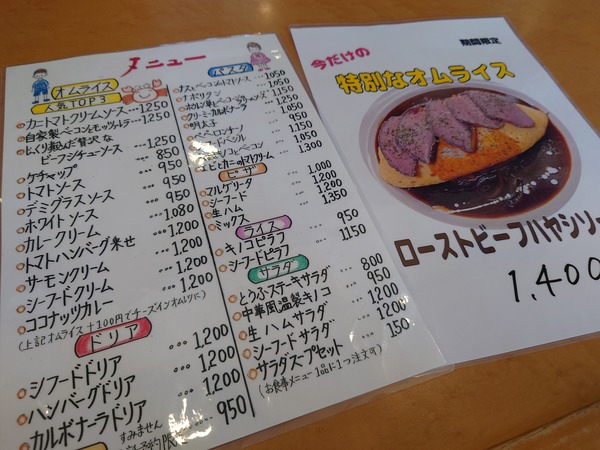 メニュー
オムライス
人気TOP3
カニトマトクリームソース…1250
自家製ベーコンとモッツァレラ…1250
じっくり煮込んだ贅沢な
ビーフシチューソース…1250
ケチャップ … 850
トマトソース … 950
デミグラスソース … 950
ホワイトソース … 950
カレークリーム … 1.080
トマトハンバーグ乗せ … 1,200
サーモンクリーム … 1,200
シーフードクリーム … 1,200
ココナッツカレー … 1,200
(上記オムライス +100円でチーズインオムレツに)
ドリア
シーフードドリア … 1,200
ハンバーグドリア … 1,200
カルボナーラドリア … 1,200
すみません
950
パスタ
なすとベーコントマトソース … 1050
ナポリタン … 1050
クリーミーカルボナーラ
明太子
ペペロンチーノ
1.300
ピザ
マルゲリータ … 1,000
シーフード … 1,200
生ハム … 1,200
ミックス … 1,350
ライス
キノコピラフ … 950
シーフードピラフ … 1150
サラダ
とうふステーキサラダ … 800
中華風温製キノコ … 950
生ハムサラダ … 1200
シーフードサラダ … 1200
サラダスープセット … 150
(お食事メニュー1品に1つ注文可)
期間限定
今だけの
特別なオムライス
ローストビーフハヤシソー
1,400